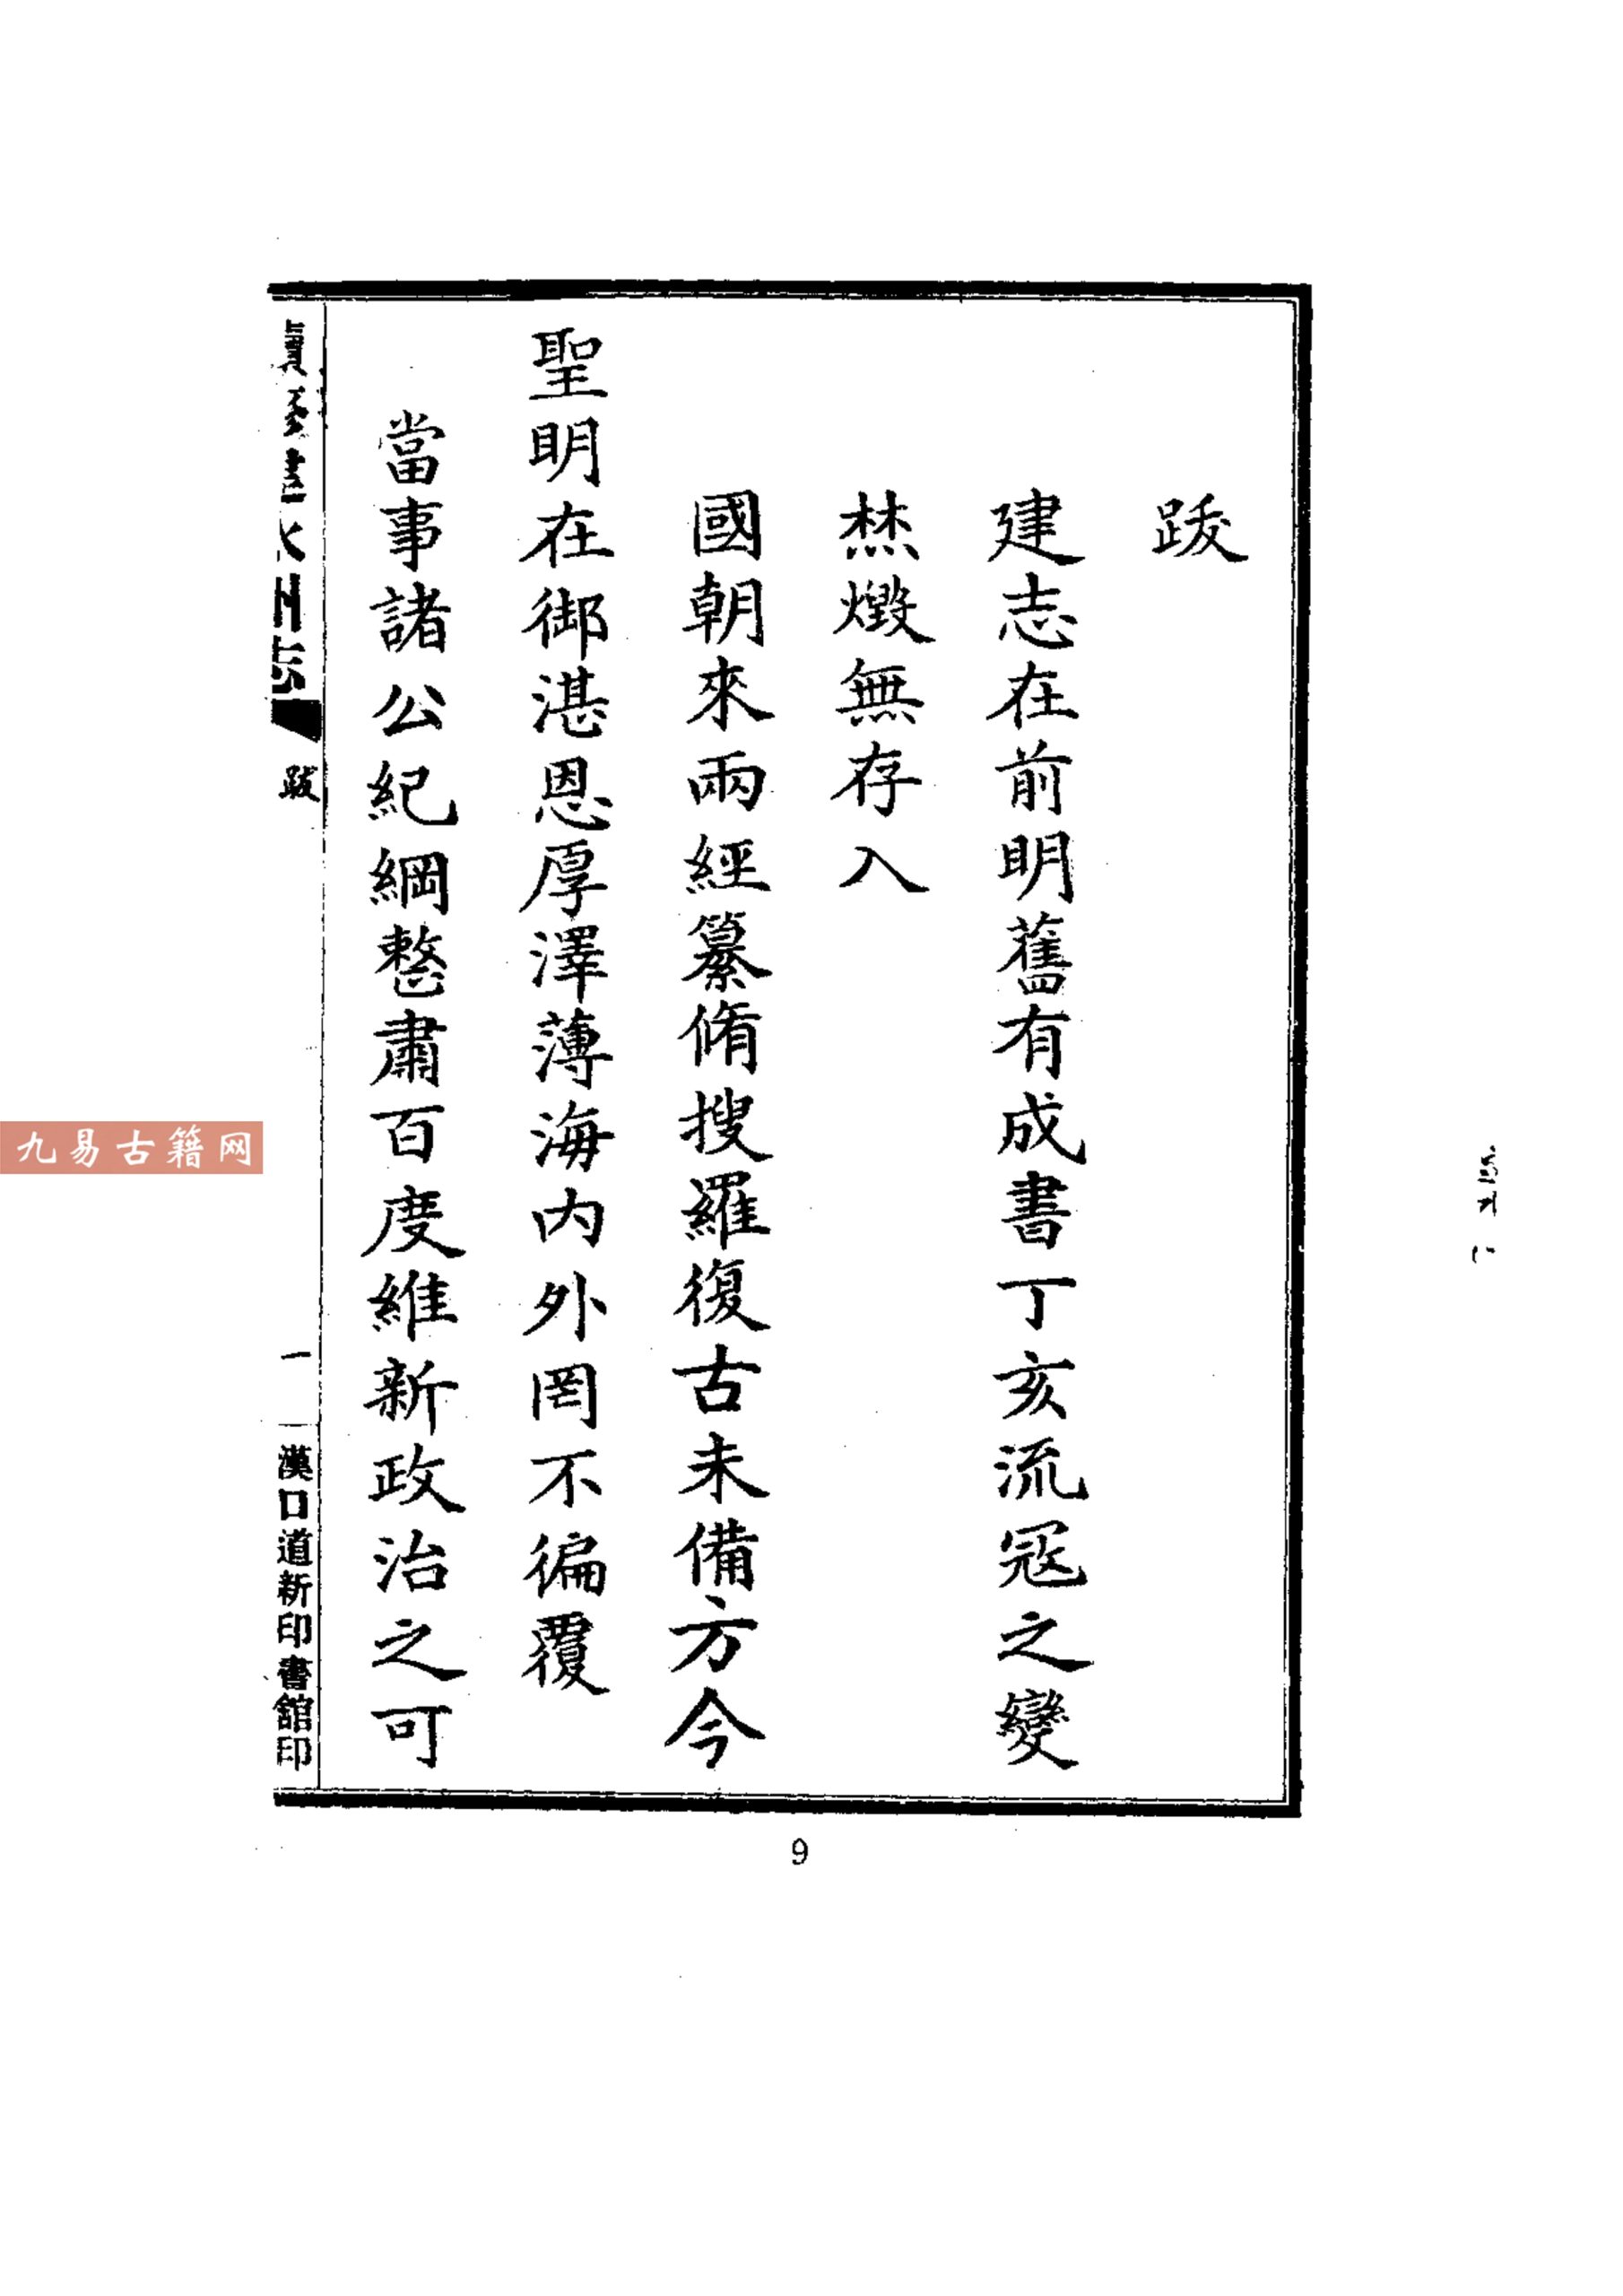 跋
建志在前明舊有成書丁亥流冦之變
焚燬無存入
國朝來兩經纂脩搜羅復古未備方今
聖明在御湛恩厚澤薄海內外罔不徧覆
當事諸公紀綱整肅百度維新政治之可
續修建水州志
跋
一
漢口道新印書館印
9
九易古籍网